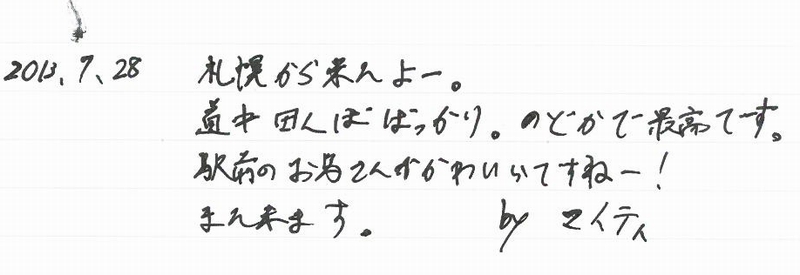 2013、7、28 札幌から来たよー。
道中田んぼばっかり。のどかで最高です。
駅前のお馬さんがかわいいですねー!
また来ます。 by マイティ